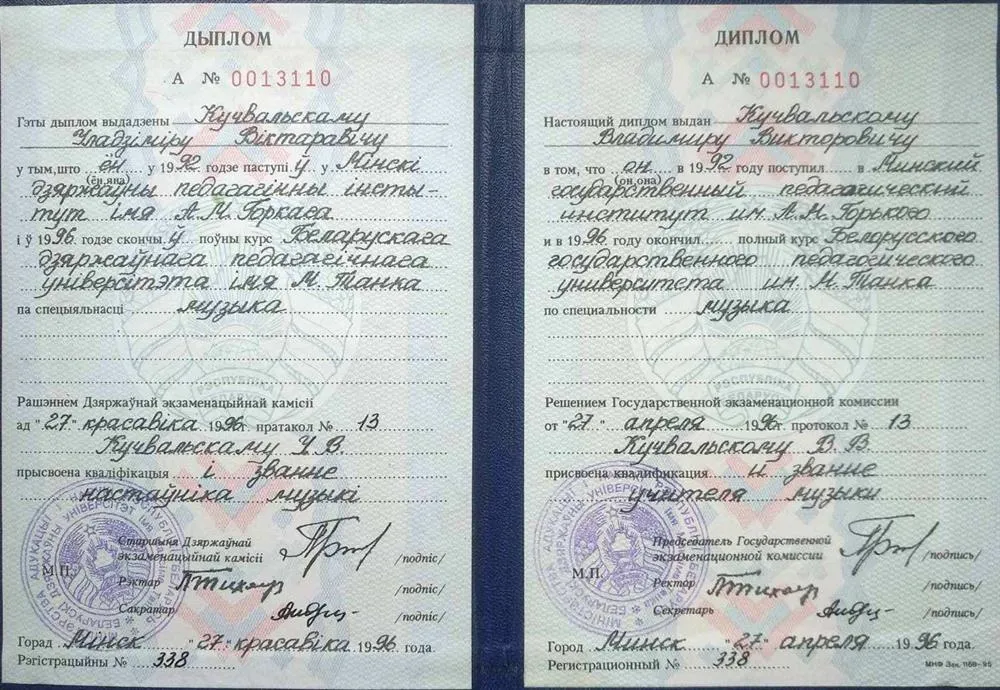 ДЫПЛОМ
А № 0013110
Гэты дыплом выдадзены Кучвальскаму
Уладзіміру Віктаравічу
у тым, што ён у 1992 годзе паступіў у Мінскі
(ён, яна)
дзяржаўны педагагічны інсты-
тут імя А.М. Горкага
і ў 1996 годзе скончыў поўны курс Беларускага
дзяржаўнага педагагічнага
універсітэта імя М. Танка
па спецыяльнасці музыка
РЭСПУБЛІКА
Рашэннем Дзяржаўнай экзаменацыйнай камісіі
ад "27" красавіка 1996 пратакол № 13
Кучвальскаму У. В.
прысвоена кваліфікацыя і званне
настаўніка музыкі
Старшыня Дзяржаўнай
экзаменацыйнай камісіі /подпіс/
М.П.
Рэктар /подпіс/
Сакратар /подпіс/
Горад Мінск "27" красавіка 1996 года.
Рэгістрацыйны № 338
ДИПЛОМ
А № 0013110
Настоящий диплом выдан Кучвальскому
Владимиру Викторовичу
в том, что он в 1992 году поступил в Минский
(он, она)
государственный педагогический
институт им. А.М. Горького
и в 1996 году окончил полный курс Белорусского
государственного педагогического
университета им М. Танка
по специальности музыка
РЭСПУБЛІКА
Решением Государственной экзаменационной комиссии
от "27" апреля 1996 протокол № 13
Кучвальскому В. В.
присвоена квалификация и звание
учителя музыки
Председатель Государственной
экзаменационной комиссии /подпись/
М.П.
Ректор /подпись/
Секретарь /подпись/
Город Минск "27" апреля 1996 года.
Регистрационный № 338
МНФ Зак. 1168-95